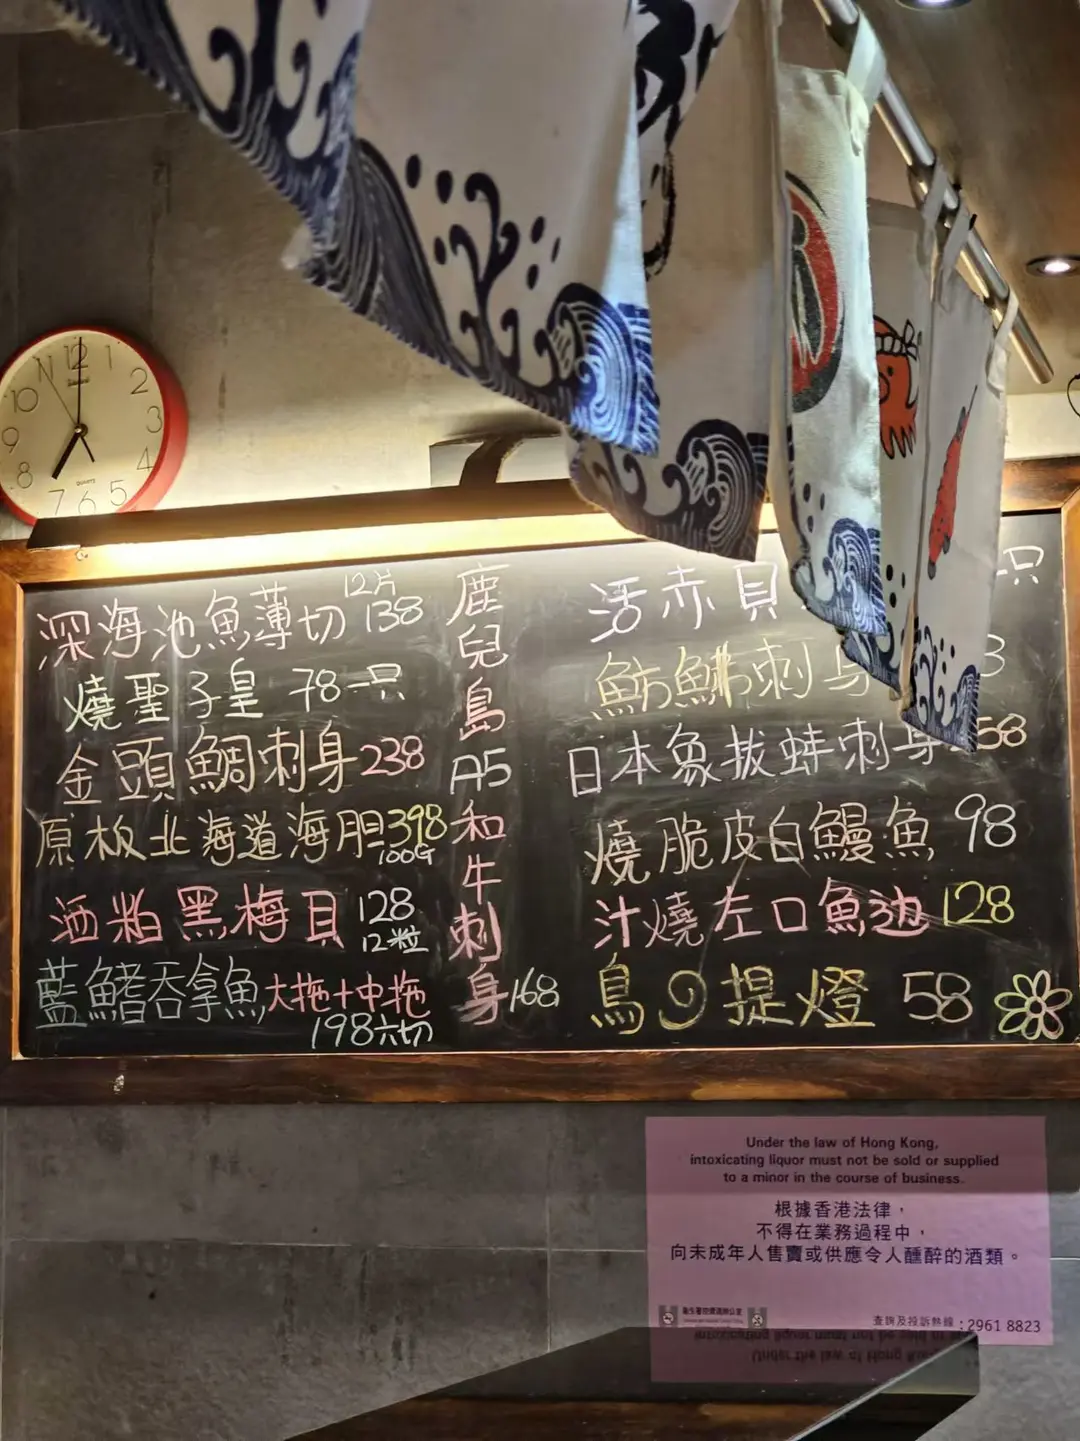 12
1
2
3
4
5
6
7
8
9
10
QUARTZ
12片
深海池魚薄切 138
燒聖子皇 78一只
金頭鯛刺身 238
原板北海道海胆 398
100G
酒粕黑梅貝 128
12粒
藍鰭吞拿魚 大拖+中拖
198六切
鹿兒島A5和牛刺身 168
活赤貝 一只
魴鮄刺身
日本象拔蚌刺身 58
燒脆皮白鰻魚 98
汁燒左口魚边 128
鳥の提燈 58
Under the law of Hong Kong,
intoxicating liquor must not be sold or supplied
to a minor in the course of business.
根據香港法律，
不得在業務過程中，
向未成年人售賣或供應令人醺醉的酒類。
查詢及投訴熱線：2961 8823